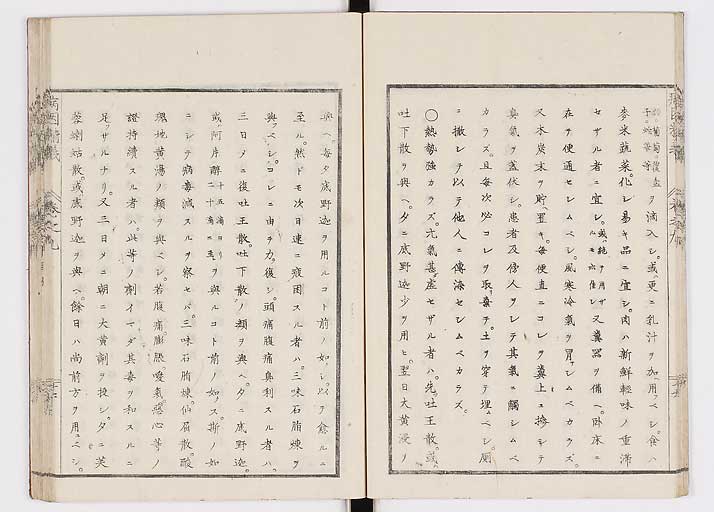 ヲ滴入シ。或更ニ乳汁ヲ加用スベシ。食ハ
麥米蔬菜。化シ易キ品ニ宜シ。肉ハ新鮮軽味ノ重滞
セザル者ニ宜シ。又糞器ヲ備ヘ。臥床ニ
在テ便通セシムベシ。風寒冷氣ヲ冒サシムベカラズ。
又木炭末ヲ貯ヘ置キ。毎便直ニコレヲ糞上ニ撒シテ
臭氣ヲ蓋伏シ。患者及傍人ヲシテ其氣ニ觸レシムベ
カラズ。且毎次必コレヲ取棄テ。土ヲ穿テ埋ムベシ。厠
ニ撒シテ以テ他人ニ傳染セシムベカラズ。
〇熱勢強カラズ。元氣甚虚セザル者ハ。先吐王散。或
吐下散ヲ與ヘ。夕ニ底野迦少ヲ用ヒ。翌日大黄浸ノ
與ヘ。毎夕底野迦ヲ用ルコト前ノ如シ。以テ愈ルニ
至ル。然ドモ次日速ニ疲困スル者ハ。三味石脂煉ヲ
與ベシ。コレニ由テ力復シ。頭痛腹痛臭利スル者ハ。
三日メニ復吐王散。吐下散ノ類ヲ與ヘ。夕ニ底野迦。
或阿片醉二十滴ニ至ヲ與ルコト前ノ如ス。斯ノ如
ニシテ病毒減スルヲ察セバ。三味石脂煉。仙眉散。酸
煗地黄湯ノ類ヲ與ベシ。若腹痛。膨脹。噯氣。惡心等ノ
證持續スル者ハ。此等ノ劑イマダ其毒ヲ和スルニ
足ザルナリ。又三日夕ニ朝ニ大黄劑ヲ投シ。夕ニ芙
蓉蝲蛄散。或底野迦ヲ與ヘ。餘日ハ尚前方ヲ用ベシ。